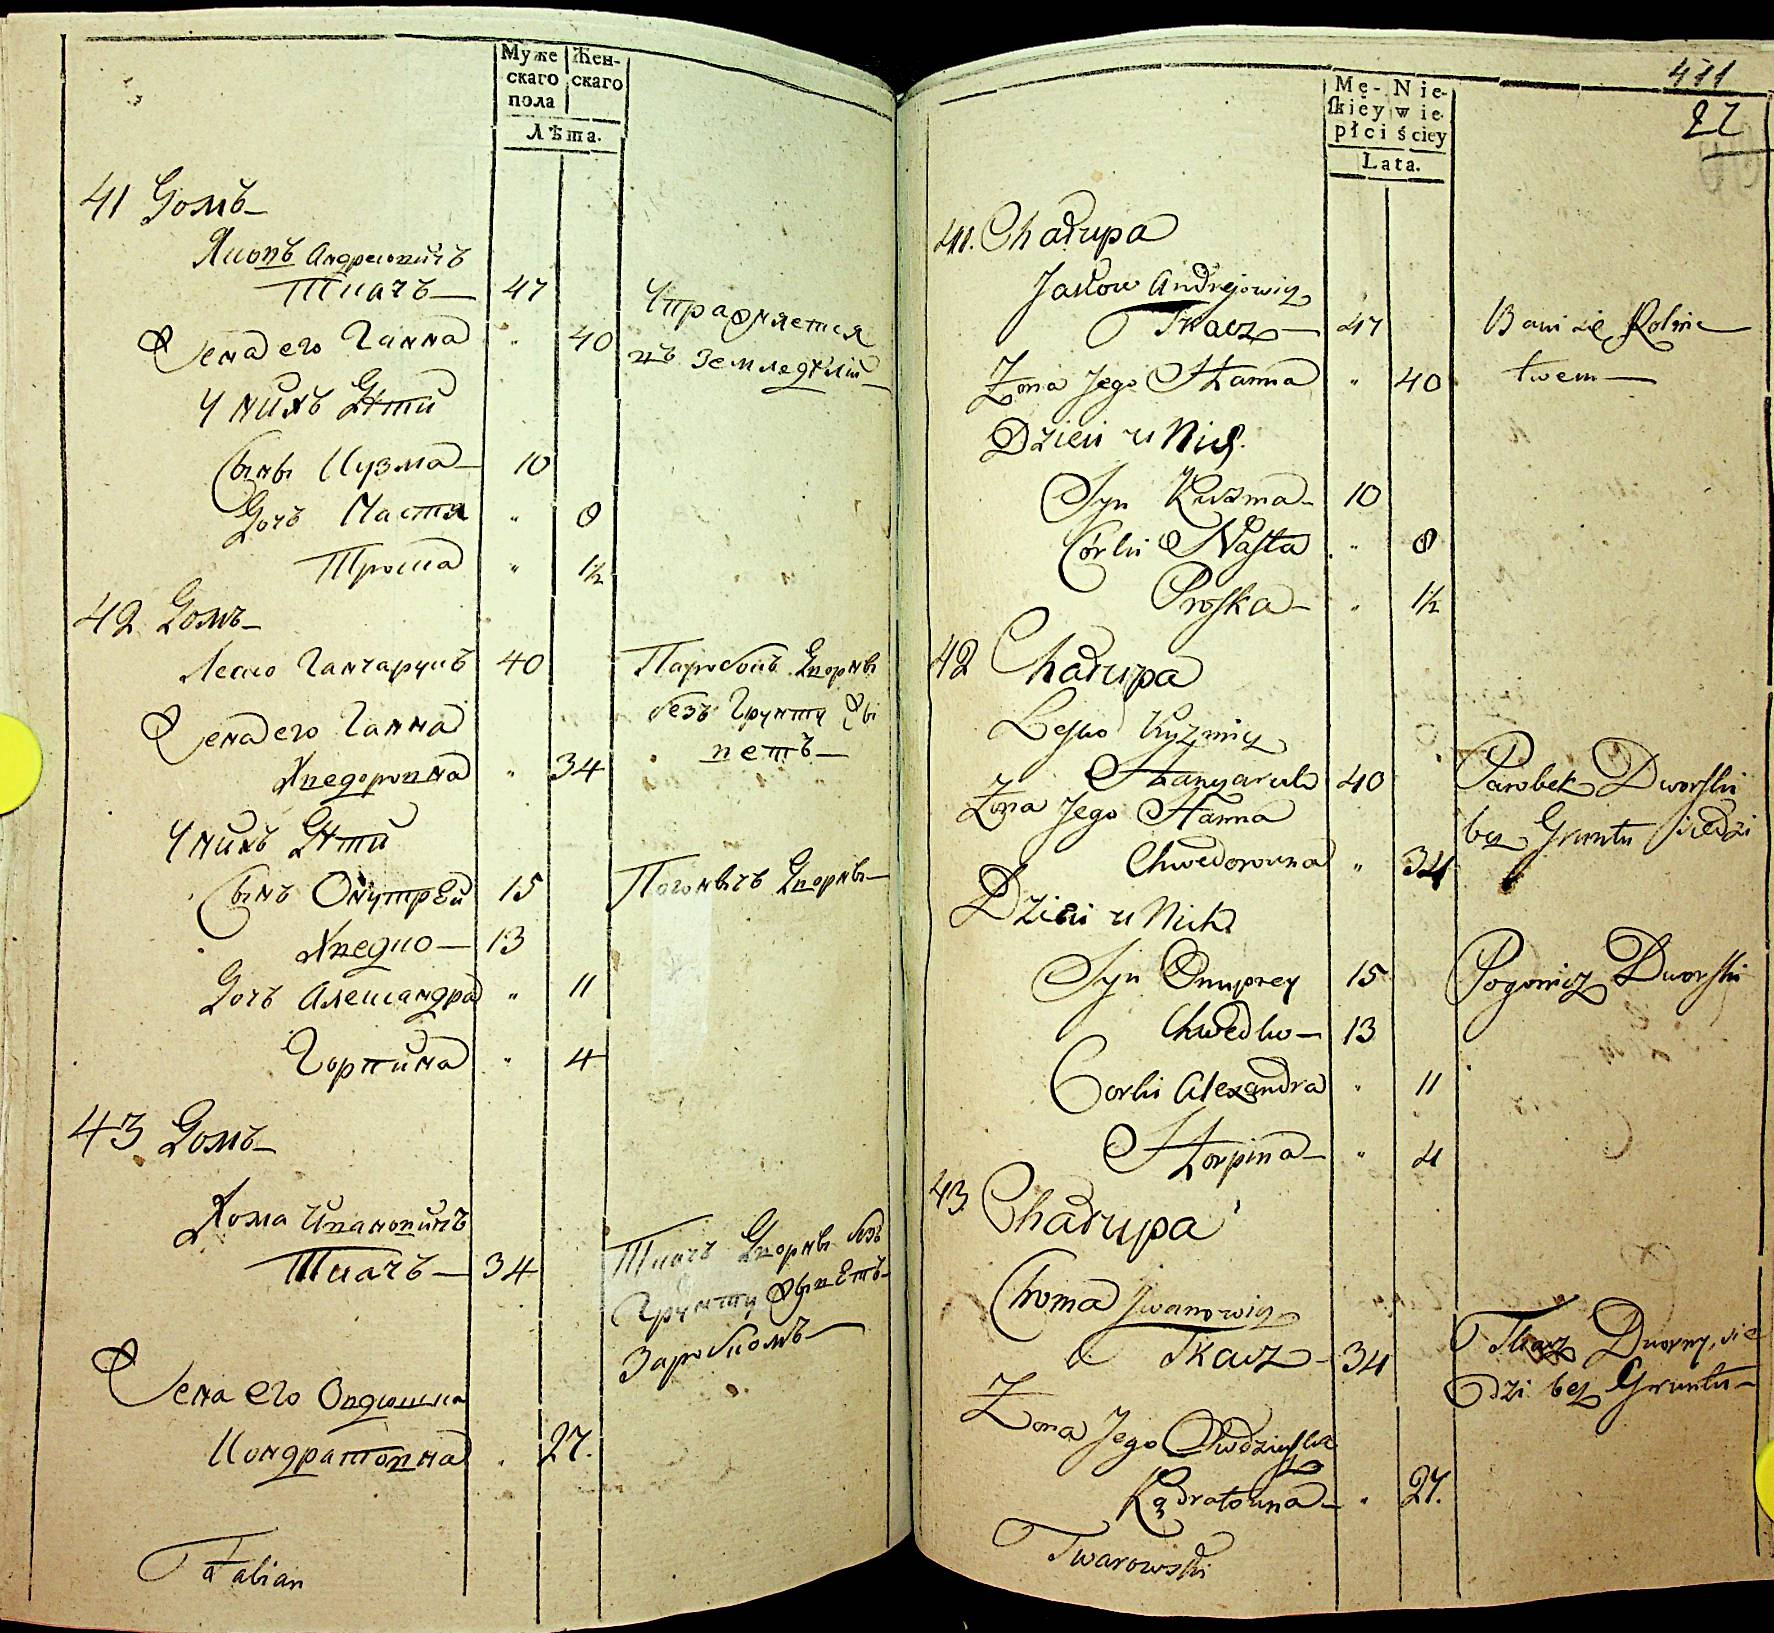 Муже Жен-
скаго скаго
пола
Лѣта.
41 Домъ
Яковъ Андреовичъ
Ткачъ 47
Жена его Ганна " 40
Упражняется
въ Земледѣлiи
У нихъ Дѣти
Сынъ Кузма 10
Дочъ Наста " 8
Проска " 1½
42 Домъ
Леско Ганчарукъ 40
Паробокъ Дворны
безъ Грунту Жы
ветъ
Жена его Ганна
Хведоровна " 34
У нихъ Дѣти
Сынъ Онупрей 15
Погонычъ Дворны
Хведко 13
Дочъ Александра " 11
Горпина " 4
43 Домъ
Хома Ивановичъ
Ткачъ 34
Ткачъ Дворны безъ
Грунту Жыветъ
Заробкомъ
Жена его Овдюшка
Кондратовна " 27.
Fabian
411
22
Mę- Nie-
skiey wie-
płci ściey
Lata.
41. Chałupa
Jakow Andrejowicz
Tkacz 47
Bawi się Rolnic
twem
Żona Jego Hanna " 40
Dzieci u Nich.
Syn Kuzma 10
Córki Nasta " 8
Proska " 1½
42 Chałupa
Lesko Kuzmicz
Hanczaruk 40
Parobek Dworski
bez Gruntu siedzi
Żona Jego Hanna
Chwedorowna " 34
Dzieci u Nich
Syn Onuprey 15
Pogonicz Dworski
Chwedko 13
Corki Alexandra " 11
Horpina " 4
43 Chałupa
Choma Jwanowicz
Tkacz 34
Tkacz Dworny, sie
dzi bez Gruntu
Żona Jego
Kądratowna " 27.
Twarowski